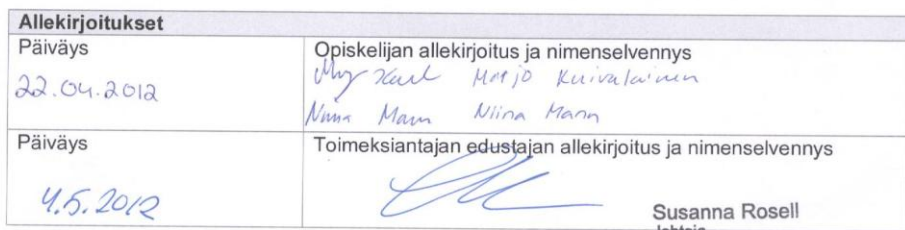 Allekirjoitukset
Päiväys
Opiskelijan allekirjoitus ja nimenselvennys
22.04.2012
Marjo Kuivalainen
Niina Mann Niina Mann
Päiväys
Toimeksiantajan edustajan allekirjoitus ja nimenselvennys
4.5.2012
Susanna Rosell